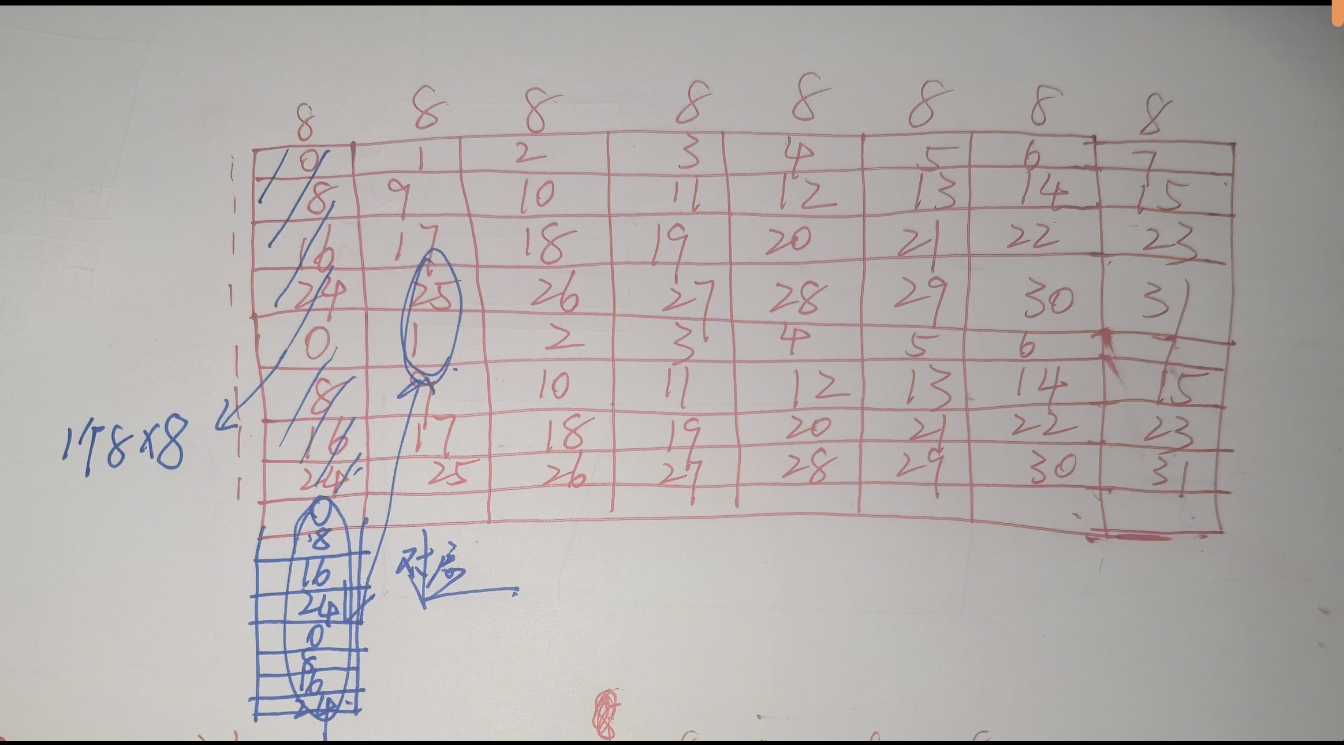 8 8 8 8 8 8 8 8
0 1 2 3 4 5 6 7
8 9 10 11 12 13 14 15
16 17 18 19 20 21 22 23
24 25 26 27 28 29 30 31
0 1 2 3 4 5 6 7
8 9 10 11 12 13 14 15
16 17 18 19 20 21 22 23
24 25 26 27 28 29 30 31
1个8×8
0
8
16
24
0
8
16
24
对应